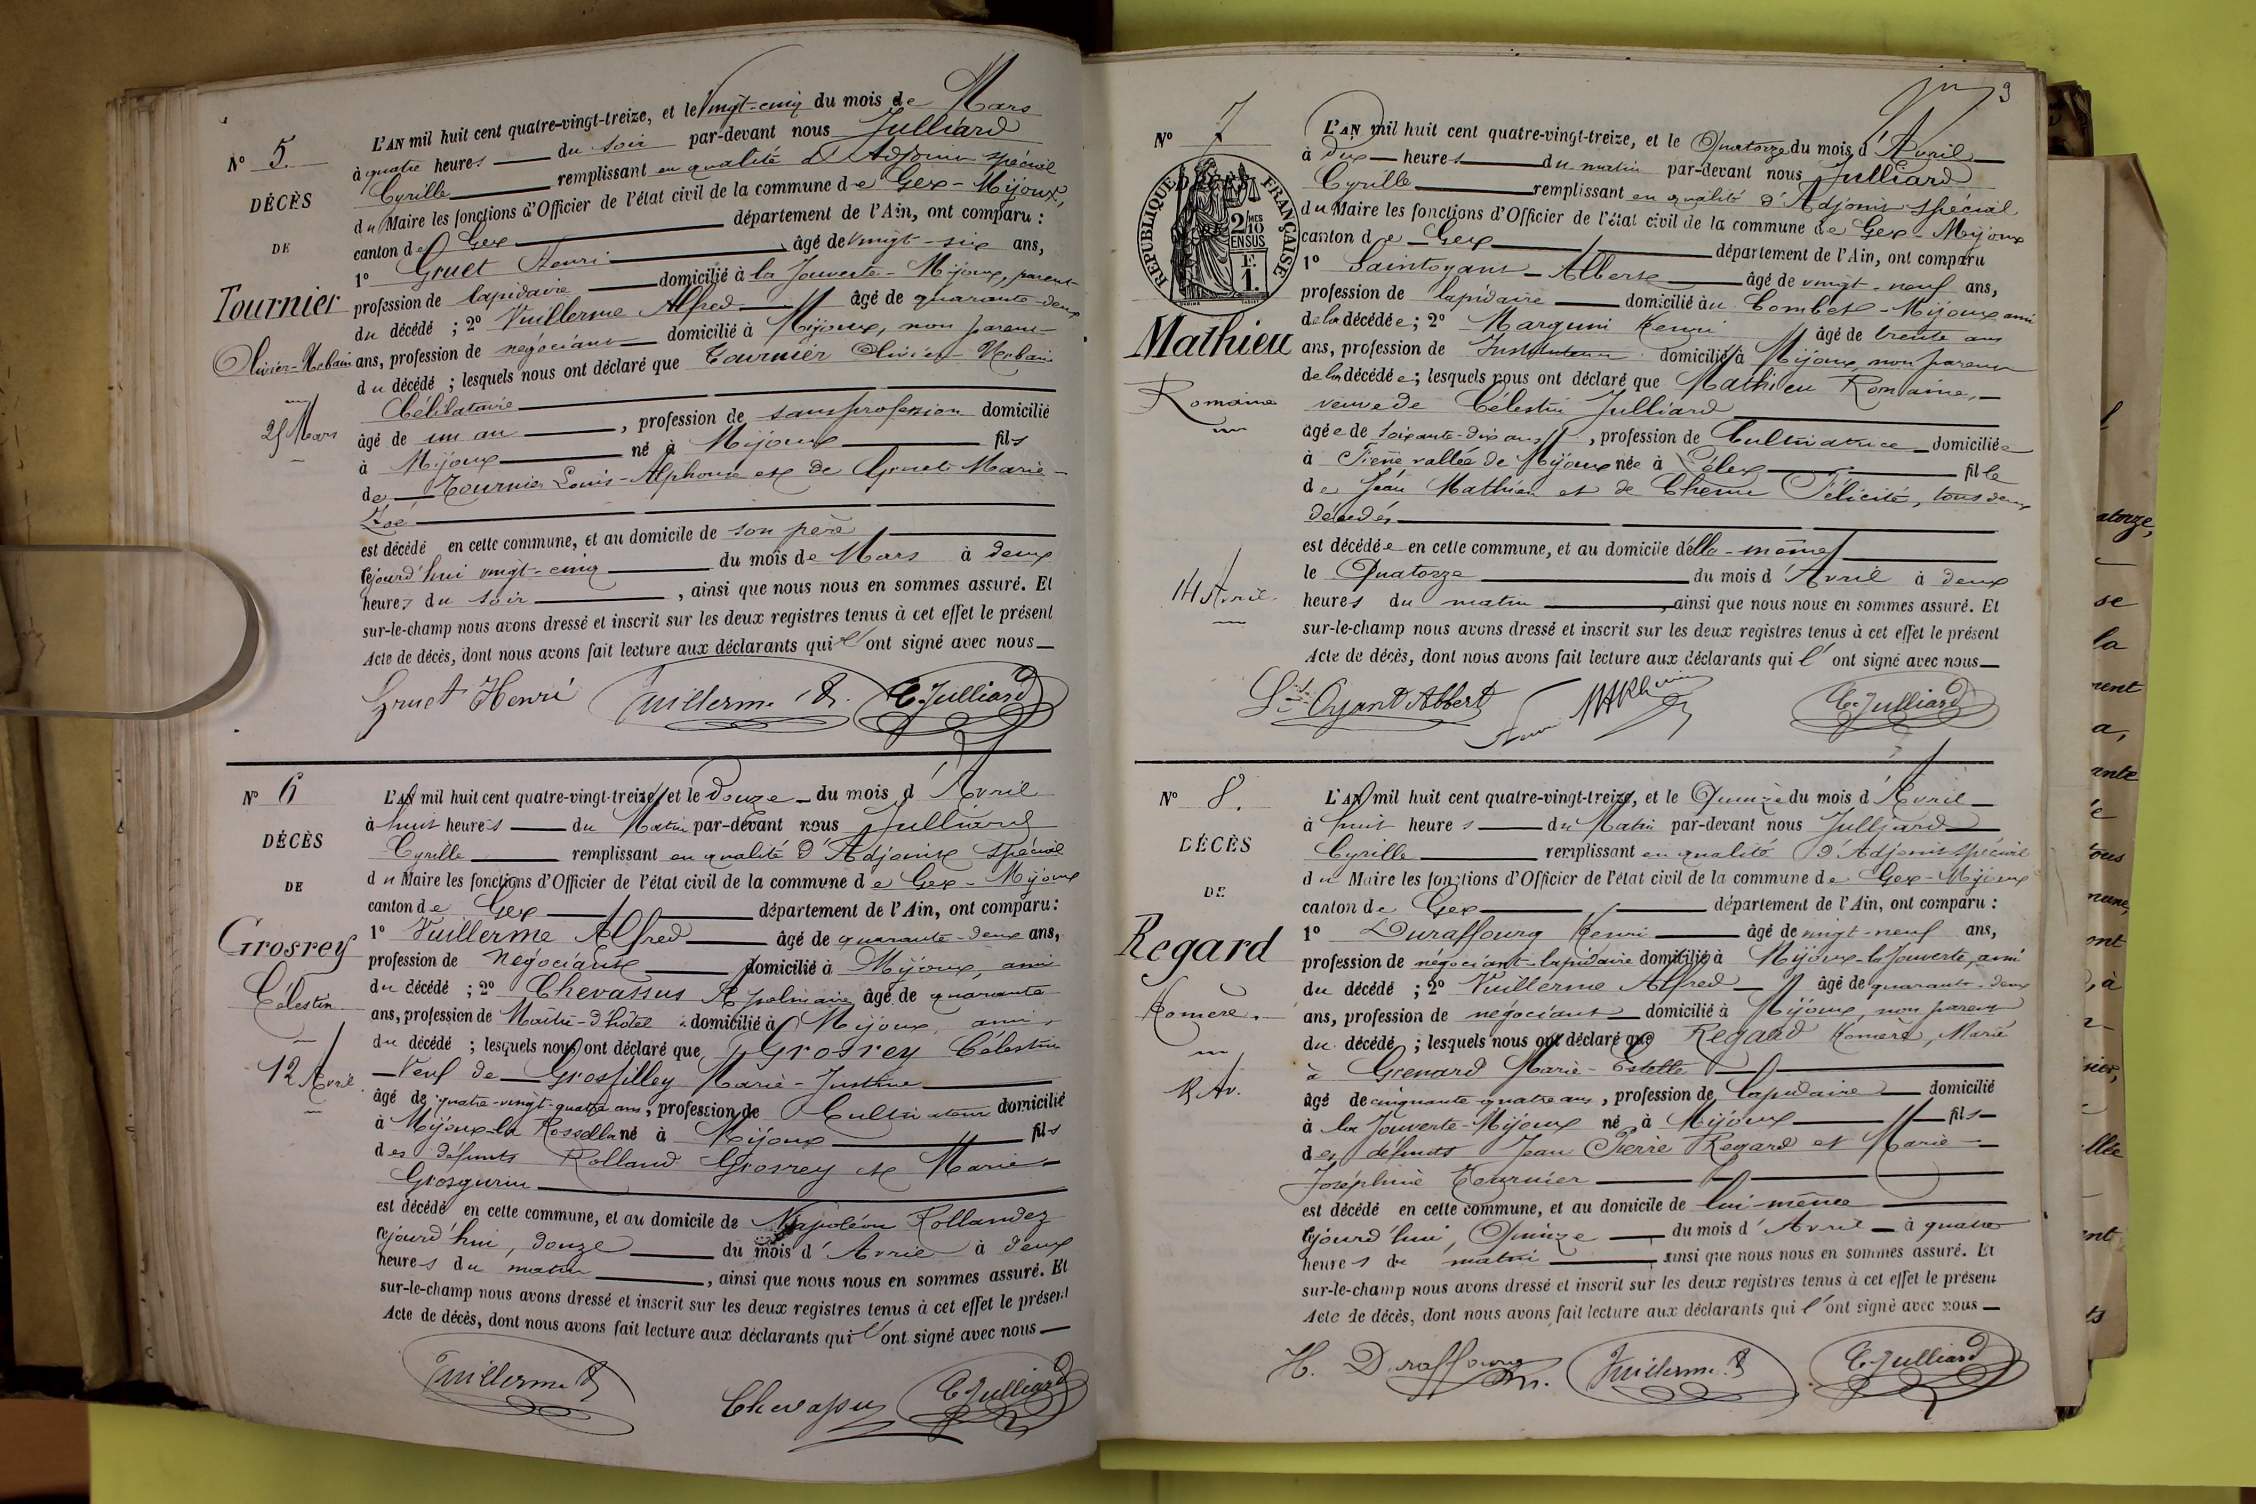 N° 5.
DÉCÈS
DE
Tournier
Olivier-Urbain
25 Mars
L'AN mil huit cent quatre-vingt-treize, et le vingt-cinq du mois de Mars
à quatre heures du soir par-devant nous Julliard
Cyrille remplissant en qualité d'Adjoint spécial
du Maire les fonctions d'Officier de l'état civil de la commune de Gex-Mijoux,
canton de Gex département de l'Ain, ont comparu :
1° Gruet Henri âgé de vingt-six ans,
profession de lapidaire domicilié à la Jouverte-Mijoux, parent
du décédé ; 2° Vuillerme Alfred âgé de quarante-deux
ans, profession de négociant domicilié à Mijoux, non parent
du décédé ; lesquels nous ont déclaré que Tournier Olivier-Urbain
Célibataire
âgé de un an, profession de sans profession domicilié
à Mijoux né à Mijoux fils
de Tournier Louis-Alphonse et de Gruet Marie-
Zoé
est décédé en cette commune, et au domicile de son père
cejourd'hui vingt-cinq du mois de Mars à deux
heures du soir, ainsi que nous nous en sommes assuré. Et
sur-le-champ nous avons dressé et inscrit sur les deux registres tenus à cet effet le présent
Acte de décès, dont nous avons fait lecture aux déclarants qui l'ont signé avec nous
Gruet Henri Vuillerme A. C. Julliard
N° 6
DÉCÈS
DE
Grosrey
Célestin
12 Avril
L'AN mil huit cent quatre-vingt-treize, et le Douze du mois d'Avril
à huit heures du Matin par-devant nous Julliard
Cyrille remplissant en qualité d'Adjoint spécial
du Maire les fonctions d'Officier de l'état civil de la commune de Gex-Mijoux
canton de Gex département de l'Ain, ont comparu :
1° Vuillerme Alfred âgé de quarante-deux ans,
profession de négociant domicilié à Mijoux, ami
du décédé ; 2° Chevassus Apolinaire âgé de quarante
ans, profession de Maître-d'hôtel domicilié à Mijoux, ami
du décédé ; lesquels nous ont déclaré que Grosrey Célestin
Veuf de Grosfilley Marie-Justine
âgé de quatre-vingt-quatre ans, profession de Cultivateur domicilié
à Mijoux-la né à Mijoux fils
des défunts Rolland Grosrey et Marie
Grosgurin
est décédé en cette commune, et au domicile de Napoléon Rollandez
cejourd'hui, douze du mois d'Avril à deux
heures du matin, ainsi que nous nous en sommes assuré. Et
sur-le-champ nous avons dressé et inscrit sur les deux registres tenus à cet effet le présent
Acte de décès, dont nous avons fait lecture aux déclarants qui l'ont signé avec nous
Vuillerme A Chevassus C. Julliard
3
N° 7
RÉPUBLIQUE FRANÇAISE
2/10 MES
EN SUS
1 F.
Mathieu
Romaine
14 Avril.
L'AN mil huit cent quatre-vingt-treize, et le Quatorze du mois d'Avril
à dix heures du matin par-devant nous Julliard
Cyrille remplissant en qualité d'Adjoint spécial
du Maire les fonctions d'Officier de l'état civil de la commune de Gex-Mijoux
canton de Gex département de l'Ain, ont comparu
1° Saintoyant Albert âgé de vingt-neuf ans,
profession de lapidaire domicilié au Combet-Mijoux ami
de la décédée ; 2° Marguin Henri âgé de trente ans
ans, profession de Instituteur domicilié à Mijoux, non parent
de la décédée ; lesquels nous ont déclaré que Mathieu Romaine,
veuve de Célestin Julliard
âgée de soixante-dix ans, profession de Cultivatrice domiciliée
à vallée de Mijoux née à Lélex fille
de Jean Mathieu et de Félicité, tous deux
décédés
est décédée en cette commune, et au domicile d'elle-même
le Quatorze du mois d'Avril à deux
heures du matin, ainsi que nous nous en sommes assuré. Et
sur-le-champ nous avons dressé et inscrit sur les deux registres tenus à cet effet le présent
Acte de décès, dont nous avons fait lecture aux déclarants qui l'ont signé avec nous
St Oyant Albert C. Julliard
N° 8.
DÉCÈS
DE
Regard
Homère.
15 Av.
L'AN mil huit cent quatre-vingt-treize, et le Quinze du mois d'Avril
à huit heures du Matin par-devant nous Julliard
Cyrille remplissant en qualité d'Adjoint spécial
du Maire les fonctions d'Officier de l'état civil de la commune de Gex-Mijoux
canton de Gex département de l'Ain, ont comparu :
1° Duraffourg Henri âgé de vingt-neuf ans,
profession de négociant-lapidaire domicilié à Mijoux-la Jouverte, ami
du décédé ; 2° Vuillerme Alfred âgé de quarante-deux
ans, profession de négociant domicilié à Mijoux, non parent
du décédé ; lesquels nous ont déclaré que Regard Homère, Marié
à Grenard Marie-Estelle
âgé de cinquante-quatre ans, profession de Lapidaire domicilié
à la Jouverte-Mijoux né à Mijoux fils
des défunts Jean Pierre Regard et Marie
Joséphine Tournier
est décédé en cette commune, et au domicile de lui-même
cejourd'hui, Quinze du mois d'Avril à quatre
heures du matin, ainsi que nous nous en sommes assuré. Et
sur-le-champ nous avons dressé et inscrit sur les deux registres tenus à cet effet le présent
Acte de décès, dont nous avons fait lecture aux déclarants qui l'ont signé avec nous
H. Duraffourg Vuillerme A C. Julliard